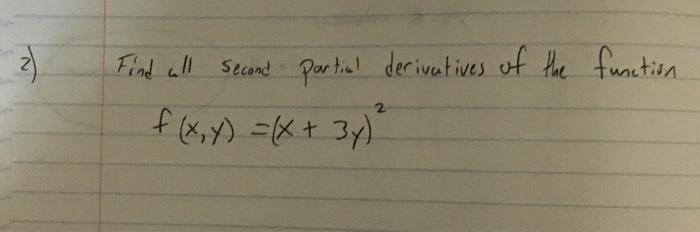 2) Find all second partial derivatives of the function
f(x,y) = (x + 3y)²